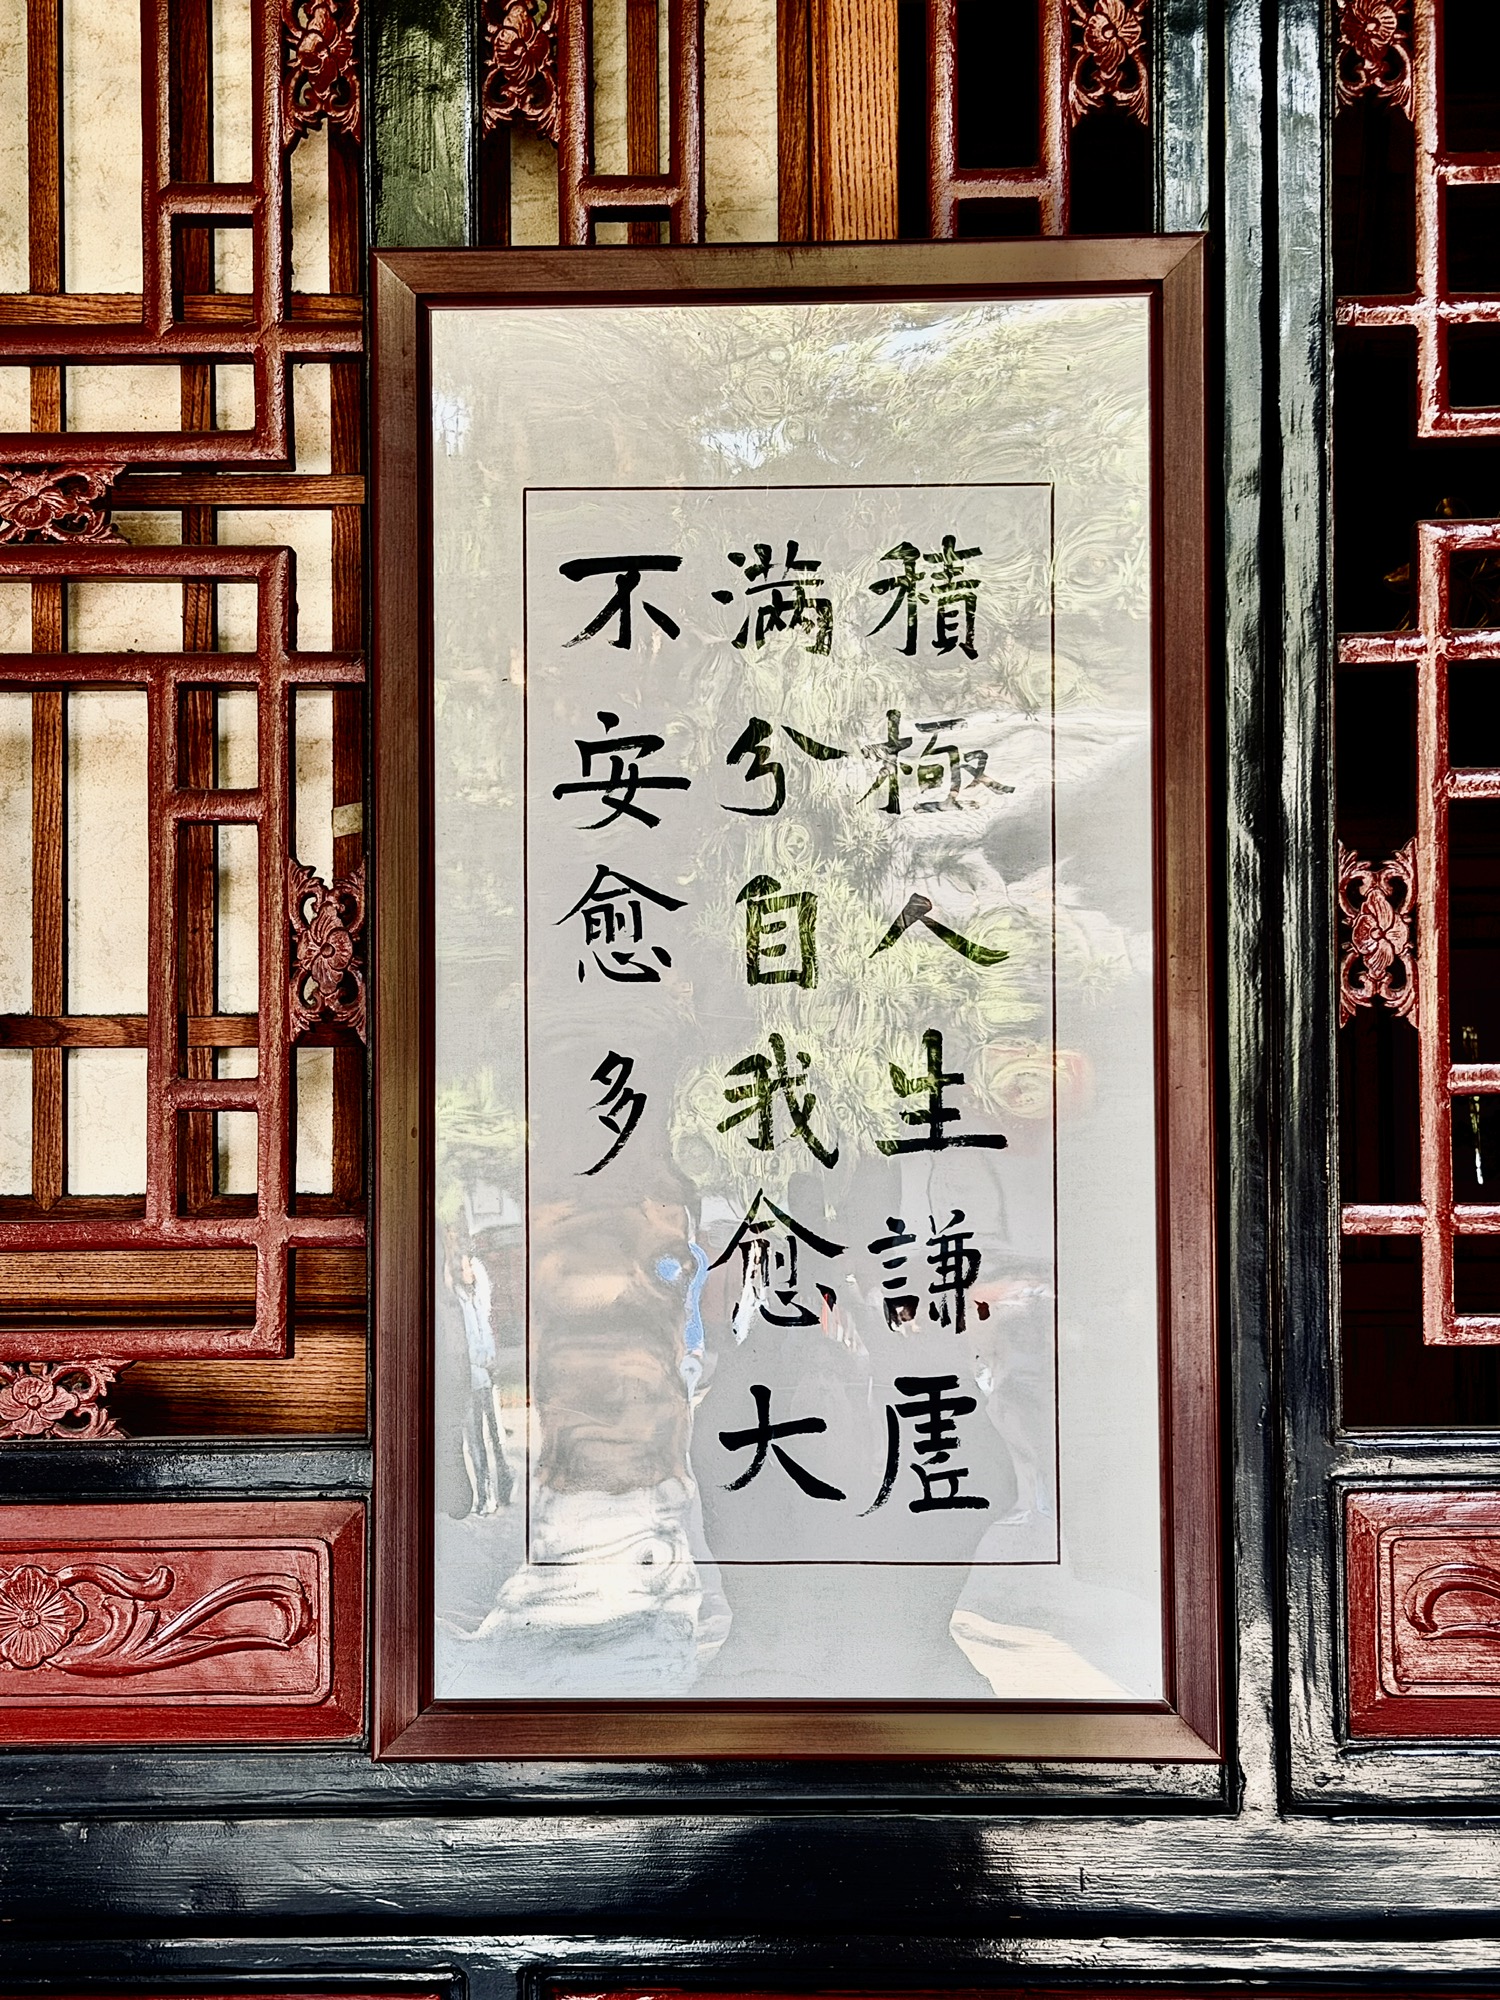 積極人生謙虛
滿兮自我愈大
不安愈多